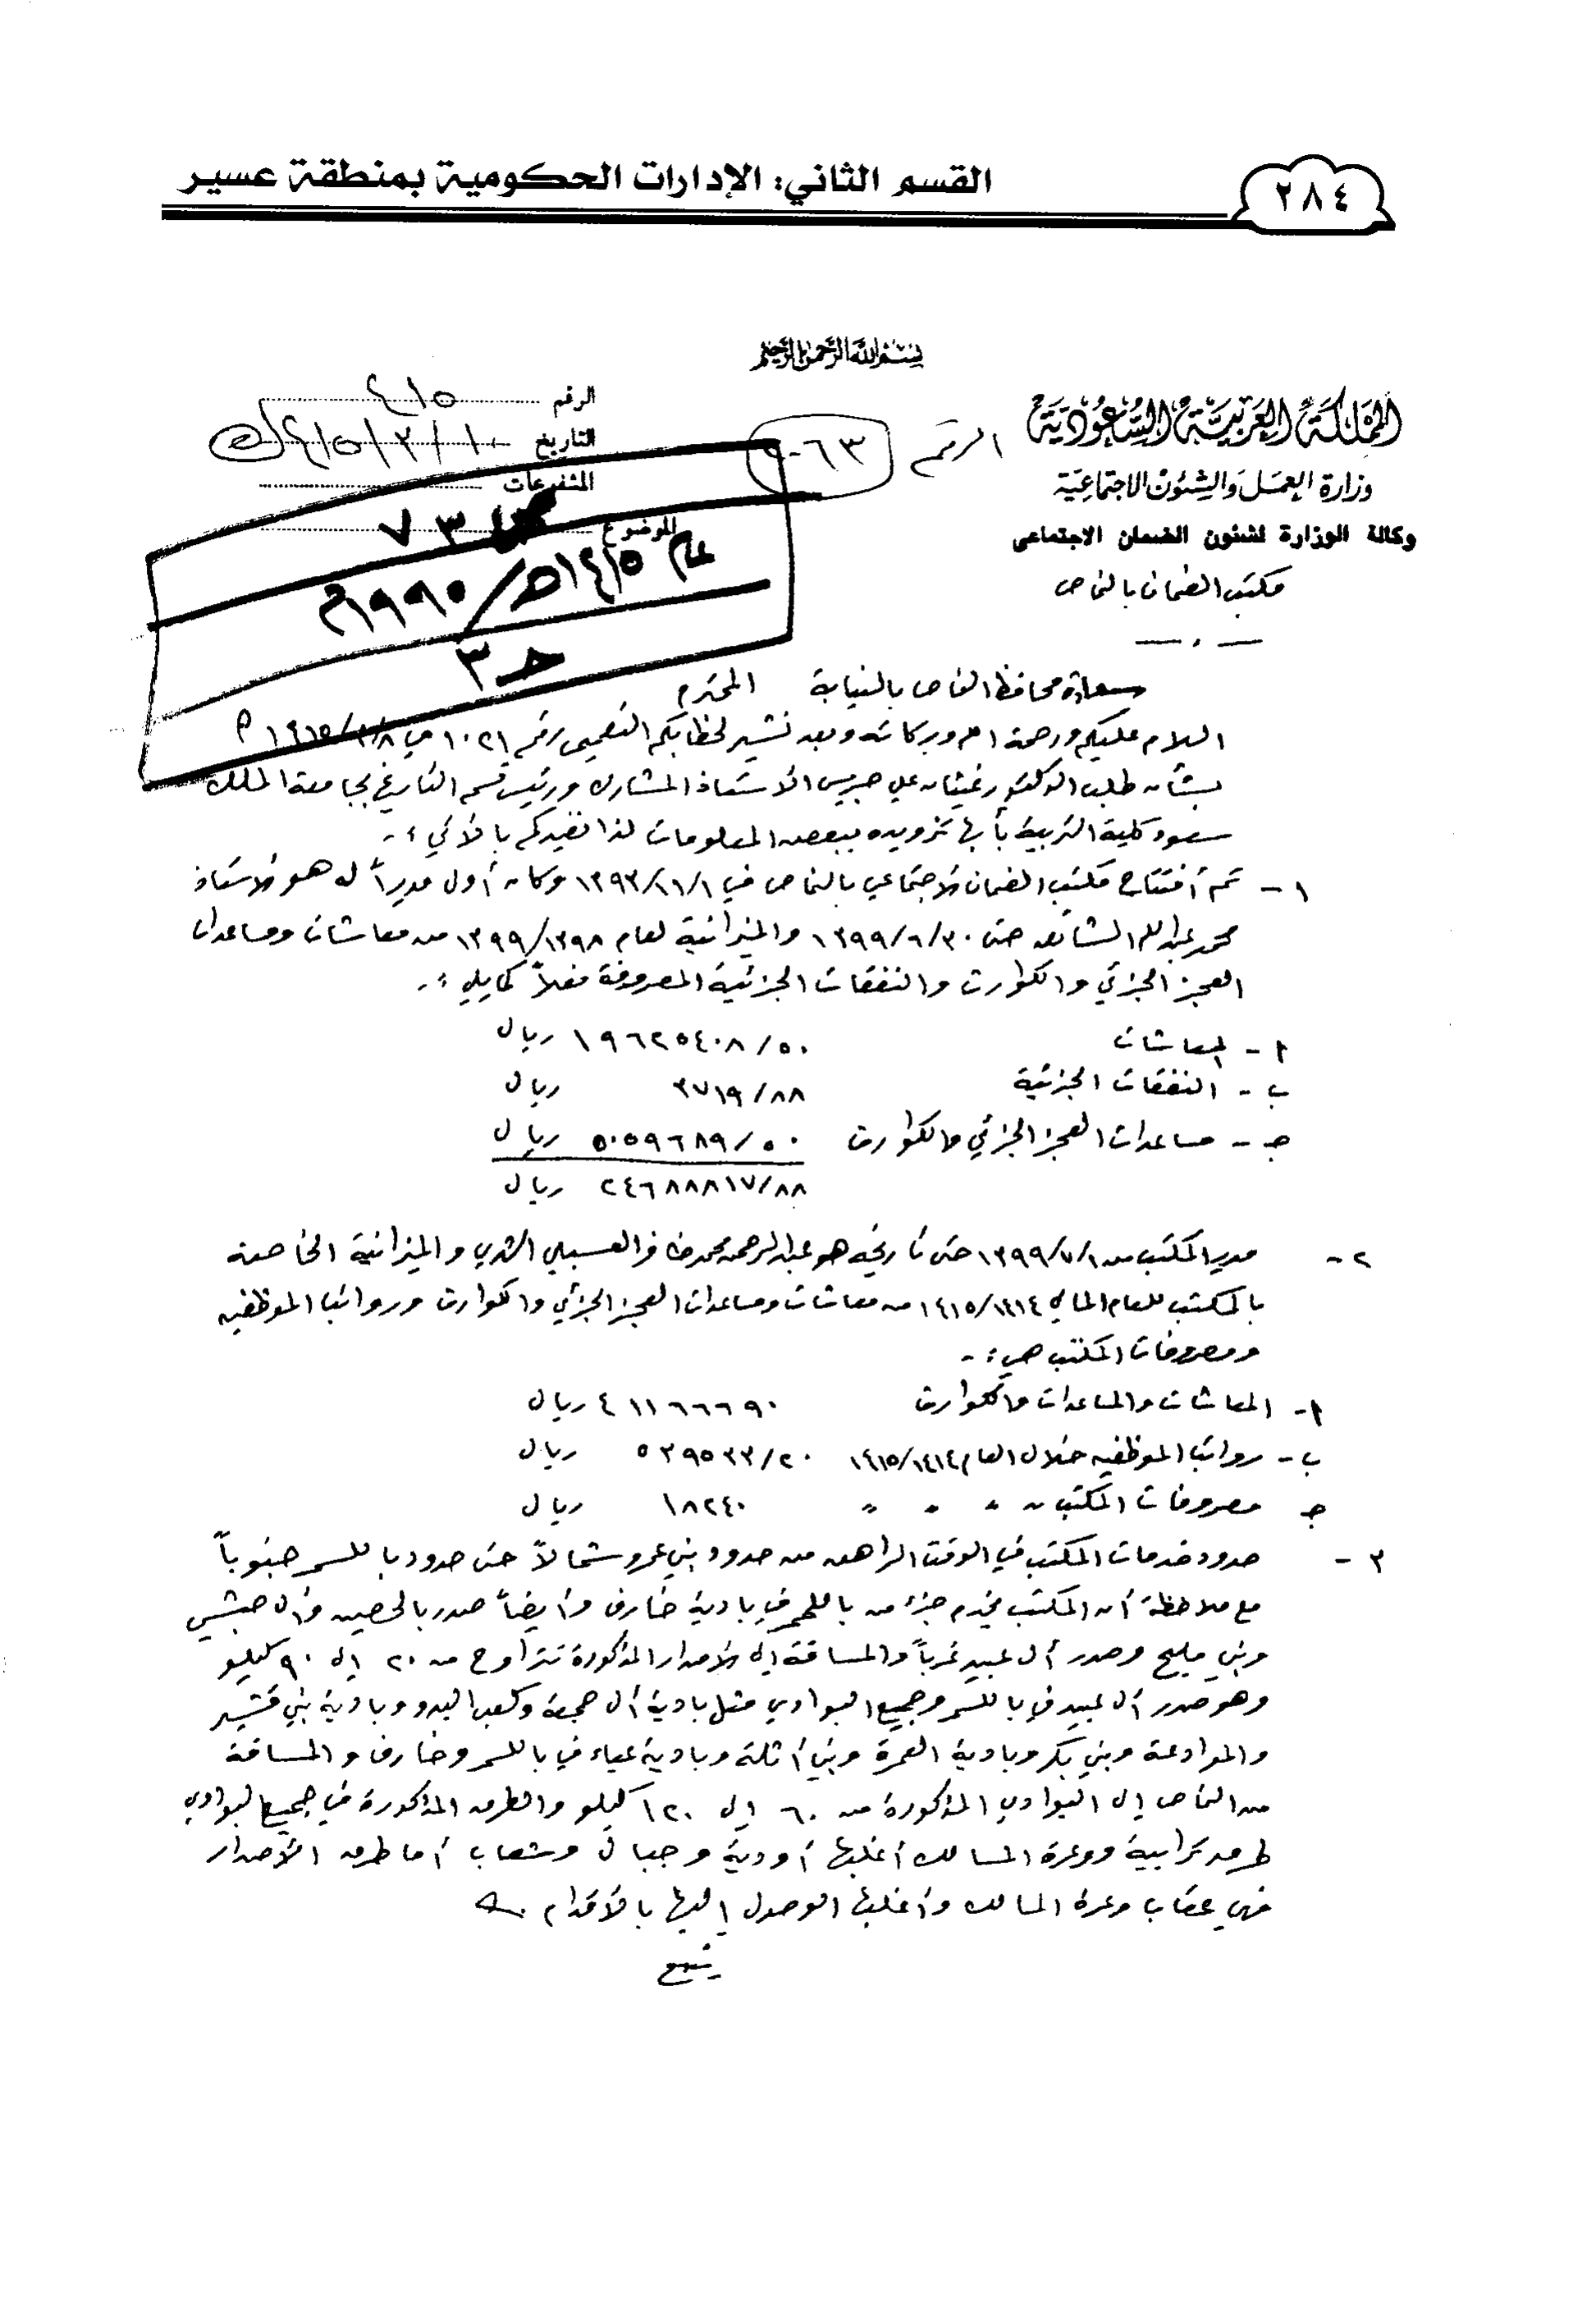 القسم الثاني: الإدارات الحكومية بمنطقة عسير
٢٨٤
بسم الله الرحمن الرحيم
المملكة العربية السعودية
وزارة العمل والشئون الاجتماعية
وكالة الوزارة لشئون الضمان الاجتماعى
مكتب الضمان بالنماص
الرقم ٩٠٦٣
الرقم ٤١٥
التاريخ ١٠/٣/٤١٥
المشفوعات
الموضوع
٧٣
عام ١٤١٥هـ/١٩٩٥م
حـ٣
سعادة محافظ النماص بالنيابة المحترم
السلام عليكم ورحمة الله وبركاته وبعد نشير لخطابكم التعميمي رقم ١٠٢١ في ١٤١٥/٢/٨
بشأن طلب الدكتور غيثان علي جريس الأستاذ المشارك ورئيس قسم التاريخ بجامعة الملك
سعود كلية التربية بأبها تزويده ببعض المعلومات لذا نفيدكم بالآتي :-
١- تم أفتتاح مكتب الضمان الاجتماعي بالنماص في ١٣٩٣/١١/١ وكان أول مديراً له هو الاستاذ
محمد عبدالله الشائع حتى ١٣٩٩/٦/٣٠ والميزانية لعام ١٣٩٩/١٣٩٨ من معاشات ومساعدات
العجز الجزئي والكوارث والنفقات الجزئية المصروفة فعلاً كما يلي :-
أ- المعاشات ١٩٦٢٥٤٠٨/٥٠ ريال
ب- النفقات الجزئية ٣٧١٩/٨٨ ريال
جـ- مساعدات العجز الجزئي والكوارث ٥٠٥٩٦٨٩/٥٠ ريال
٢٤٦٨٨٨١٧/٨٨ ريال
٢- مدير المكتب من ١٣٩٩/٧/١ حتى تاريخه هو عبدالرحمن محمد ظافر العسبلي الشهري والميزانية الخاصة
بالمكتب للعام المالي ١٤١٥/١٤١٤ من معاشات ومساعدات العجز الجزئي والكوارث ورواتب الموظفين
ومصروفات المكتب هي :-
أ- المعاشات والمساعدات والكوارث ٤١١٦٦٦٩٠ ريال
ب- رواتب الموظفين خلال العام ١٤١٥/١٤١٤ ٥٣٩٥٣٣/٢٠ ريال
جـ مصروفات المكتب " " " " ١٨٢٤٠ ريال
٣- حدود خدمات المكتب في الوقت الراهن من حدود بني عمرو شمالاً حتى حدود باللسمر جنوباً
مع ملاحظة أن المكتب يخدم جزء من باللحمر في بادية خارف وأيضاً صدر بالحصين وآل حبشي
وبني مليح وصدر آل عبيد غرباً والمسافة إلى الاصدار المذكورة تتراوح من ٢٠ إلى ٩٠ كيلو
وهو صدر آل عبيد في باللسمر وجميع البوادي مثل بادية آل حجمة وكعب البدو وبادية بني قشير
والموادعة وبني بكر وبادية العمرة وبني أثلة وبادية عياء في باللسمر وخارف والمسافة
من النماص إلى البوادي المذكورة من ٦٠ إلى ١٢٠ كيلو والطرق المذكورة في جميع البوادي
طرق ترابية ووعرة المسالك أغلبها أودية وجبال وشعاب أما طرق الأصدار
فهي عقاب وعرة المسالك وأغلبها الوصول إليها بالأقدام .
يتبع